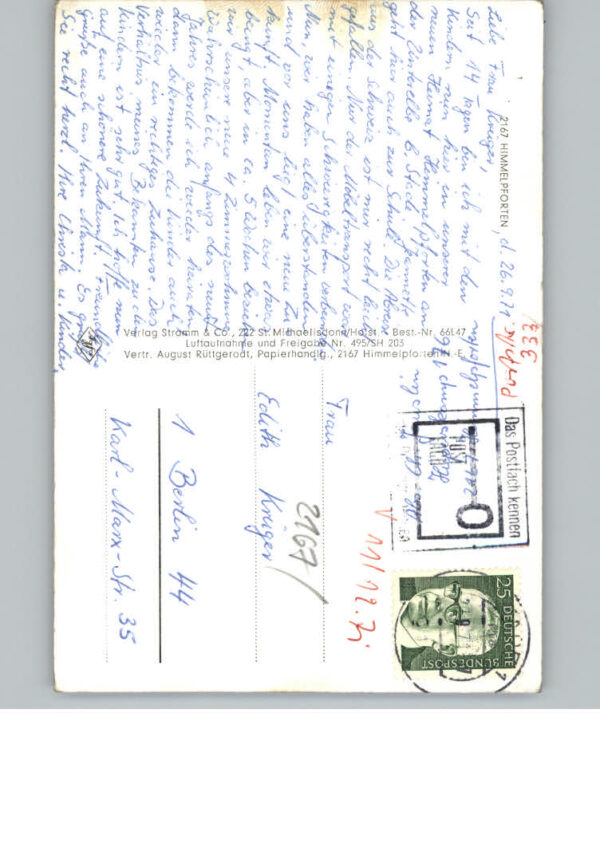 2167 HIMMELPFORTEN, d. 26.9.71
Liebe Frau Krüger,
Seit 14 Tagen bin ich mit den
Kindern nun hier in unserer
neuen Heimat Himmelpforten an
der Zinnkrolle b. Stade. Annette
geht hier auch zur Schule. Die Abreise
aus der Schweiz ist mir recht leicht
gefallen. Nur der Möbeltransport war
mit einigen Schwierigkeiten verbunden.
Nun, wir haben alles überstanden
und vor uns liegt eine neue Zu-
kunft. Momentan leben wir etwas
beengt, aber in ca. 5 Wochen beziehen
wir unsere neue 4 Zimmerwohnung.
Wahrscheinlich anfangs des neuen
Jahres werde ich wieder heiraten,
dann bekommen die Kinder auch
wieder ein richtiges Zuhause. Das
Verhältnis meines Bekannten zu den
Kindern ist sehr gut. Ich hoffe nun
auf eine schönere Zukunft. Freundliche
Grüße auch an Ihren Mann. Es grüßt
Sie recht herzl. Ihre u. Kinder
Verlag Stramm & Co., 222 St. Michaelisdonn/Holst. - Best.-Nr. 66L47
Luftaufnahme und Freigabe Nr. 495/SH 203
Vertr. August Rüttgerodt, Papierhandlg., 2167 Himmelpforten N.-E.
333
Das Postfach kennen
V 11/12. Zi
25
DEUTSCHE
BUNDESPOST
Frau
Edith Krüger
2167/
1 Berlin 44
Karl-Marx-Str. 35